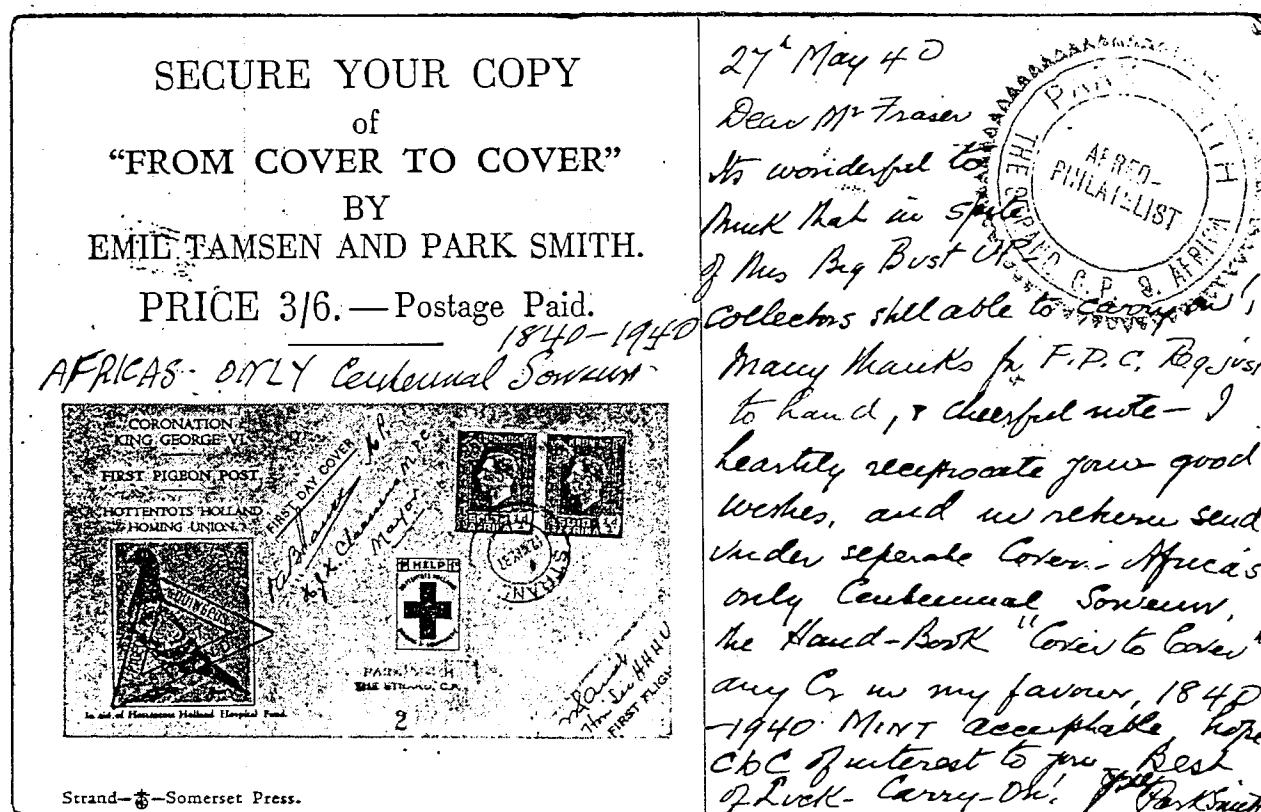 SECURE YOUR COPY
of
"FROM COVER TO COVER"
BY
EMIL TAMSEN AND PARK SMITH.
PRICE 3/6.—Postage Paid.
1840-1940
AFRICAS - ONLY Centennal Souvenir
CORONATION
KING GEORGE VI.
FIRST PIGEON POST
HOTTENTOTS HOLLAND
HOMING UNION.
FIRST DAY COVER
Mayor
HELP
STRAND
PARK SMITH
THE STRAND, C.P.
2
FIRST FLIGHT
In aid of Hottentots Holland Hospital Fund.
Strand—Somerset Press.
27th May 40
Dear Mr Fraser
Its wonderful to
think that in spite
of this Big Bust UP!
collectors still able to carry on!,
Many thanks for F.D.C. Reg just
to hand, & cheerful note - I
heartily reciprocate your good
wishes, and in return send
under seperate Cover - Africa's
only Centennual Souvenir,
the Hand-Book "Cover to Cover"
any Cr in my favour, 1840
-1940 MINT acceptable, hope
CtoC of interest to you - Best
of Luck - Carry-On! Park Smith
PARK SMITH
THE STRAND C.P. S. AFRICA
AEREO-
PHILATELIST